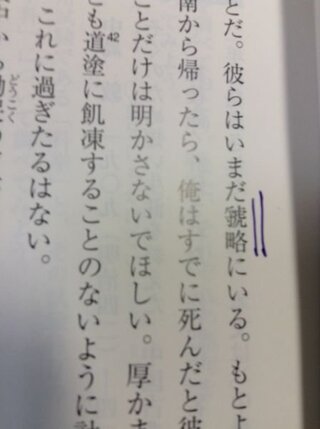 とだ。彼らはいまだ虢略にいる。もとよ
南から帰ったら、俺はすでに死んだと彼
ことだけは明かさないでほしい。厚かま
とも道塗に飢凍することのないように計
42
これに過ぎたるはない。
から
どうこく